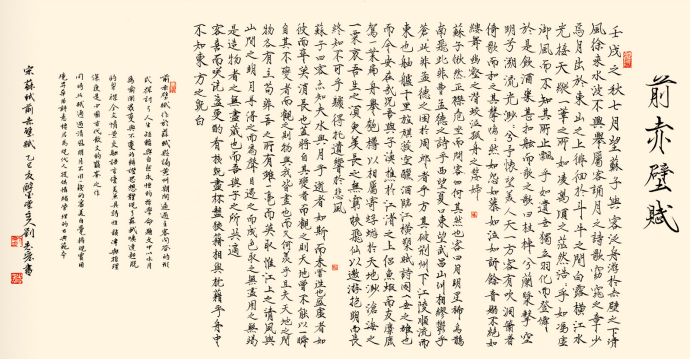 前赤壁賦
壬戌之秋七月望蘇子與客泛舟游於赤壁之下清
風徐來水波不興舉酒屬客誦明月之詩歌窈窕之章少
焉月出於東山之上徘徊於斗牛之間白露橫江水
光接天縱一葦之所如凌萬頃之茫然浩浩乎如馮虛
御風而不知其所止飄飄乎如遺世獨立羽化而登僊
於是飲酒樂甚扣舷而歌之歌曰桂棹兮蘭槳擊空
明兮溯流光渺渺兮予懷望美人兮天一方客有吹洞簫者
倚歌而和之其聲嗚嗚然如怨如慕如泣如訴餘音嫋嫋不絕如
縷舞幽壑之潛蛟泣孤舟之嫠婦
蘇子愀然正襟危坐而問客曰何為其然也客曰月明星稀烏鵲
南飛此非孟德之詩乎西望夏口東望武昌山川相繆鬱乎
蒼蒼此非孟德之困於周郎者乎方其破荊州下江陵順流而
東也舳艫千里旌旗蔽空釃酒臨江橫槊賦詩固一世之雄也
而今安在哉況吾與子漁樵於江渚之上侶魚蝦而友麋鹿
駕一葉扁舟舉匏樽以相屬寄蜉蝣於天地渺滄海之
一粟哀吾生之須臾羨長江之無窮挾飛仙以遨遊抱明月而長
終知不可乎驟得托遺響於悲風
蘇子曰客亦知夫水與月乎逝者如斯而未嘗往也盈虛者如
彼而卒莫消長也蓋將自其變者而觀之則天地曾不能以一瞬
自其不變者而觀之則物與我皆無盡也而又何羨乎且夫天地之間
物各有主苟非吾之所有雖一毫而莫取惟江上之清風與
山間之明月耳得之而為聲目遇之而成色取之無禁用之不竭
是造物者之無盡藏也而吾與子之所共適
客喜而笑洗盞更酌肴核既盡杯盤狼籍相與枕藉乎舟中
不知東方之既白
前赤壁賦作於蘇軾謫居黃州期間通過主客問答的形
式探討了人生短暫與自然永恆的哲學命題
宋蘇軾前赤壁賦乙巳